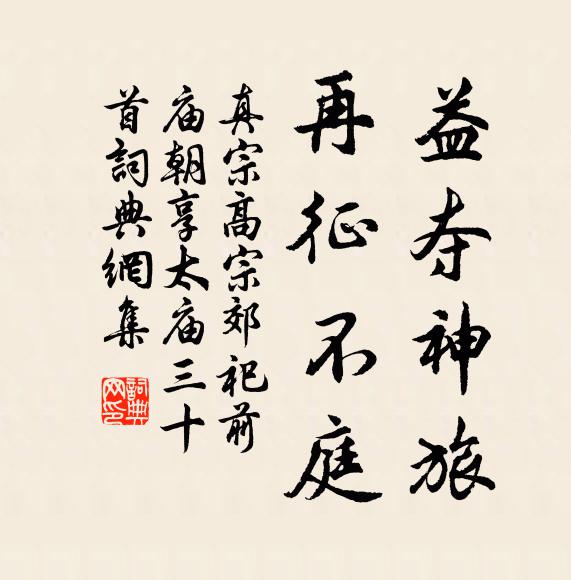 益夺神旅
再征不庭
真宗高宗郊祀前
庙朝享太庙三十
首詞典網集
詞典网印